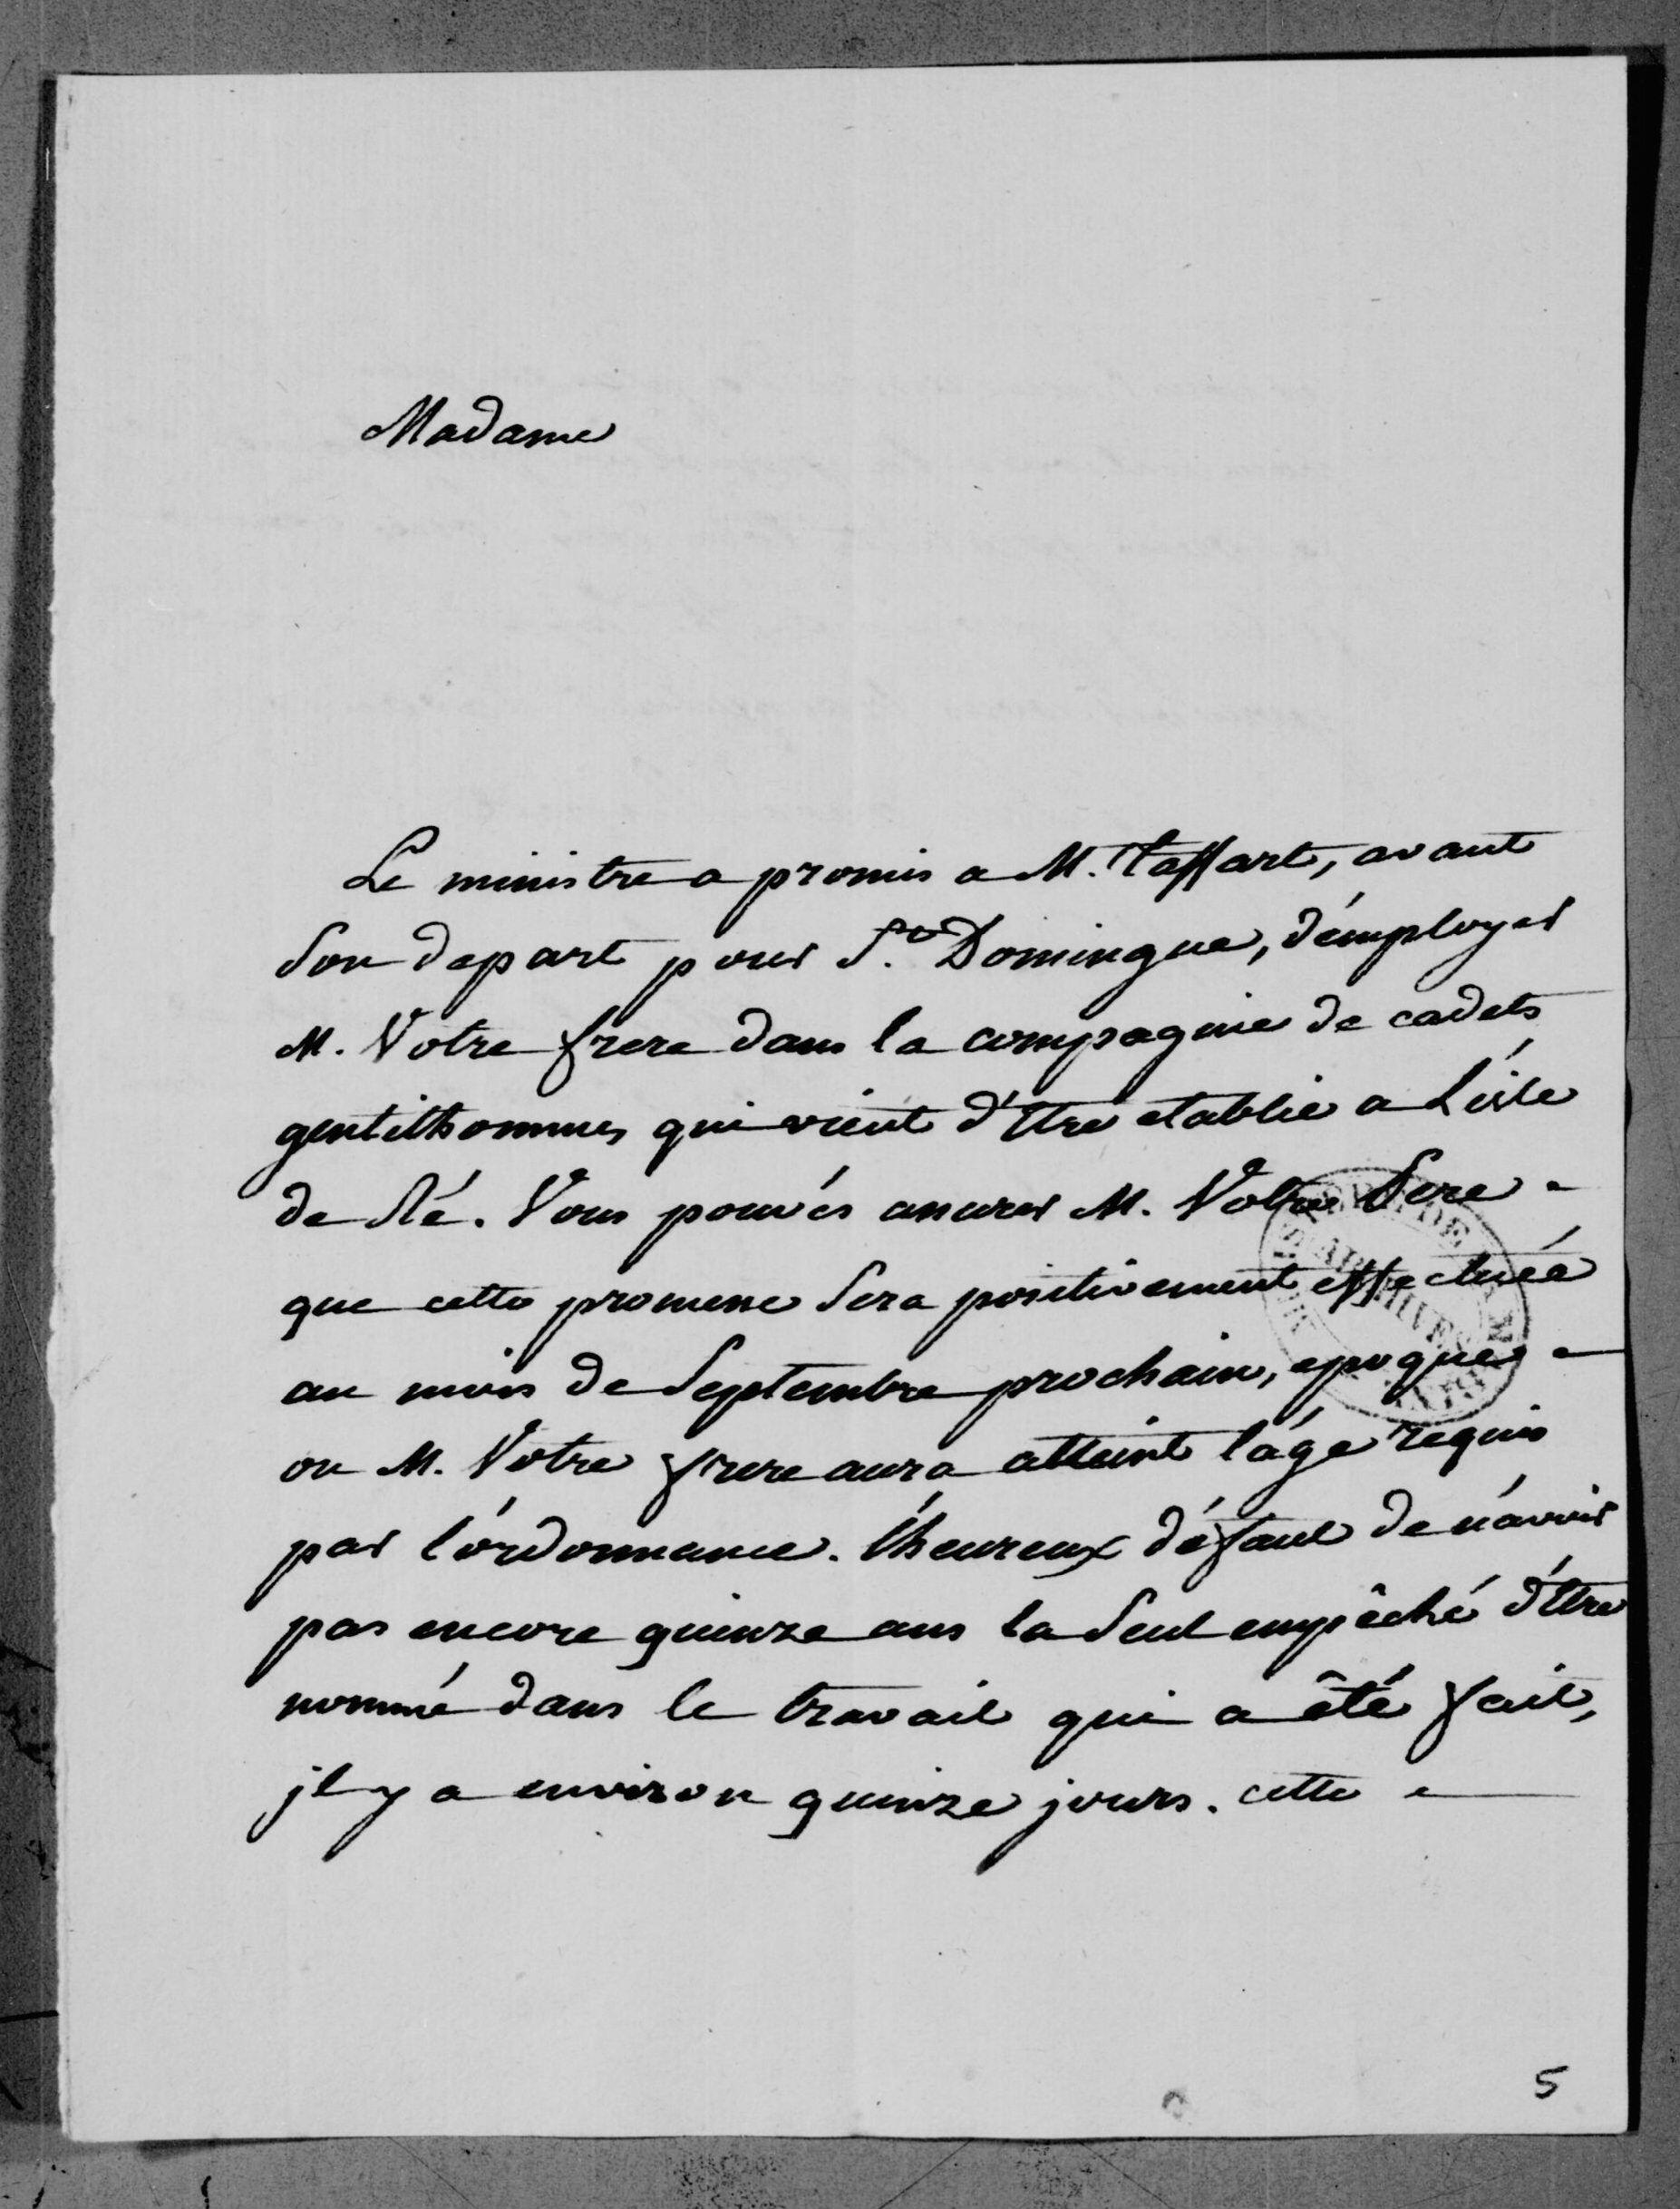 Madame
Le ministre a promis a M. Taffart, avant
Son depart pour St. Domingue, d'employer
M. Votre frere dans la compagnie de cadets
gentilshommes qui vient d'être etablie a L'isle
de Ré. Vous pouvés assurer M. Votre Pere
que cette promesse Sera positivement effectuée
au mois de Septembre prochain, epoque
ou M. Votre frere aura atteint l'âge requis
par l'ordonnance. l'heureux défaut de n'avoir
pas encore quinze ans l'a Seul empêché d'être
nommé dans le travail qui a été fait,
jl y a environ quinze jours. cette
5